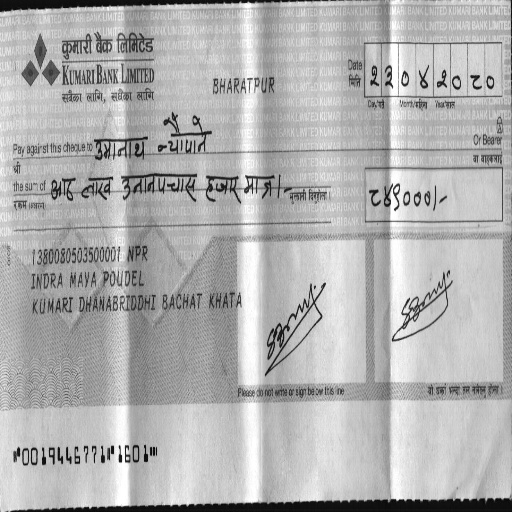 कुमारी बैंक लिमिटेड
KUMARI BANK LIMITED
सबैका लागि, सधैंका लागि
BHARATPUR
Date
मिति
२३०४२०८०
Day/गते Month/महिना Year/साल
Pay against this cheque to उमानाथ न्यौपाने
श्री
Or Bearer
वा वाहकलाई
the sum of आठ लाख उनानपचास हजार मात्र।-
रकम (अक्षरमा)
८४९०००/-
1380080503500001 NPR
INDRA MAYA POUDEL
KUMARI DHANABRIDDHI BACHAT KHATA
Please do not write or sign below this line
⑈0019446771⑈1601⑈